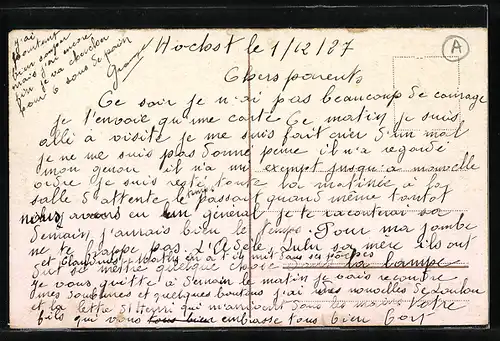 j'ai
pourtant
bien soupé
mais j'ai encore
fin je va chercher
pour 6 sous de pain
Höchst le 1/12/27
Chers parents
Ce soir je n'ai pas beaucoup de courage
je t'envoie qu'une carte Ce matin je suis
allé à visite je me suis fait crier d'un mal
je ne me suis pas donné peine il n'a regardé
mon genou il n'a mis exempt jusqu'à nouvelle
ordre je suis resté toute la matinée à la
salle d'attente le passait quand même tantot
nous avons eu un général je te raconterai sa
demain j'aurais bien le temps. Pour ma jambe
ne te frappe pas. L'Adèle Lulu sa mère ils ont
dut se mettre quelque chose la lampe
Je vous quitte à demain le matin je vais recevoir
et quelques boutons j'ai nouvelles de Loulou
et la lettre d'Henri qui dans les Votre
fils qui vous embrasse tous bien fort
A